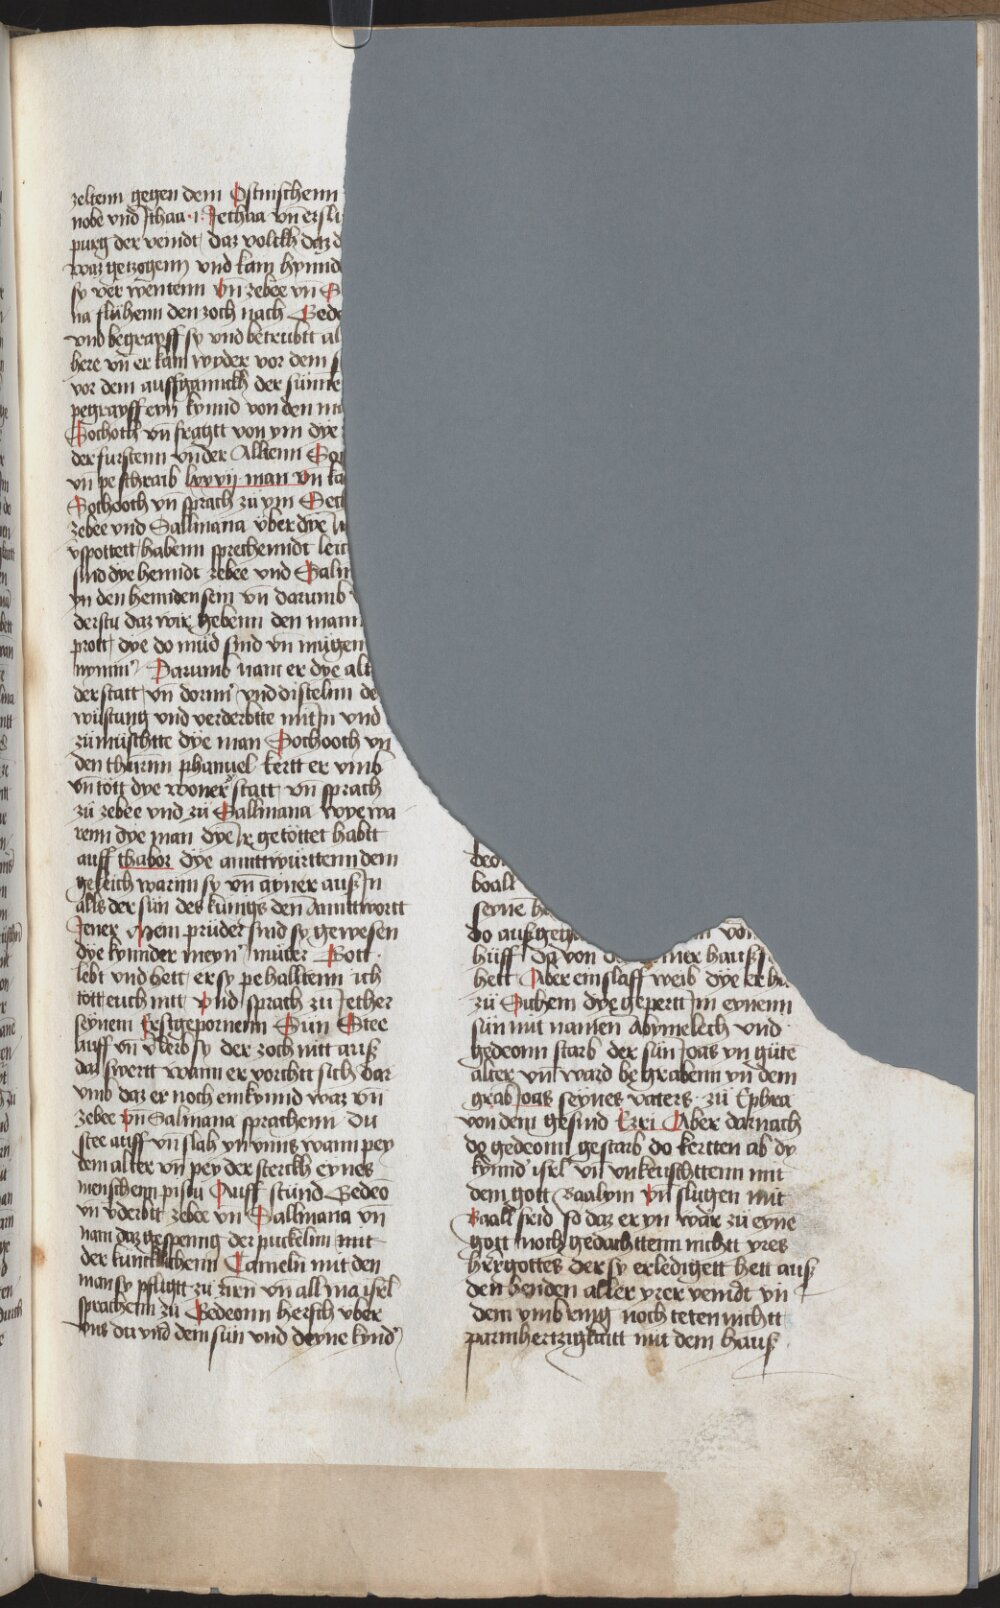 zeltenn gegen dem Ostnischenn
nobe vnd Jthaa ·i· Jethaa vn̄ ersl
purg der veindt daz volckh daz d
waz getzogenn vnd kam hynnid
sy ver wentenn Vn̄ zebee vn̄ S
na fluhenn den zoch nach Gede
vnd begrayff sy vnd betrubtt al
here vn̄ er kam wyder vor dem s
vor dem auffganckh der sunne
pegrayff eyn kynnd von den ma
Sochoth vn̄ fragtt von ym dye
der furstenn vnder Alltenn So
vn̄ pe schraib lxxvij man Vn̄ ka
Sochooth vn̄ sprach zu ym Sech
zebee vnd Sallmana vber dye
vspottett habenn sprechenndt leic
sind dye henndt zebee vnd Salm
yn den henndensein vn̄ darumb
derstu daz wir gebenn den mann
prott dye do mud sind vn̄ mugen
nymm̄ Darumb nam er dye alt
der statt vn̄ dornn̄ vnd distelnn de
wustung vnd verderbtte mit Jn vnd
zumuschtte dye man Sochooth vn̄
den thurnn phanuel kertt er vmb
vn̄ tott dye woner statt vn̄ sprach
zu zebee vnd zu Sallmana wye wa
renn dye man dye Jr getottet habtt
auff thabor dye anntwurttenn dem
geleich warnn sy vn̄ ayner auß Jn
alls der sun des kunigs den anntwortt
Jener Mein pruder sind sy gewesen
dye kynnder meyn̄ muter Gott
lebt vnd hett er sy pe halltenn ich
tott euch nitt Vnd sprach zu Jether
seynem Erstgepornenn Sun Stee
auff vn̄ v̄derb sy der zoch nitt auß
daz swertt wann er vorchtt sich dar
vmb daz er noch ein kynnd waz vn̄
zebee Vn̄ Salmana sprachenn Du
stee auff vn̄ slah yn vnns wann pey
dem alter vn̄ pey der sterckh eynes
menschenn pistu Auff stund Gedeo
vn̄ v̄derbtt zebee vn̄ Sallmana vn̄
nam daz gespenng der puckelnn mit
der kunckhlichenn Camelnn mit den
man sy pfligtt zu zirn̄ vn̄ all ma isr̄l
sprachenn zu Gedeonn hersch vber
vns du vnd dein sun vnd deyne kynd̄
deo
boall
seyne h
do außgeg vo
huff da von d mer hauß
hett Aber ein slaff weib dye er h
zu Sichem dye gepertt Jm eynenn
sun mit namen Abymelech vnd
gedeonn starb der sun Joas yn gute
alter vn̄ ward be grabenn yn dem
grab Joas seynes vaters zu Ephra
von dem gesind Ezri Aber darnach
do gedeonn gestarb do kertten ab dy
kynnd̄ isr̄l vn̄ vnkeuschttenn mit
dem gott Baalym Vn̄ slugen mit
Baall frid so daz er yn war zu eyne
gott noch gedachttenn nichtt yres
herrgottes der sy erledigett hett auß
den henden aller yrer veindt yn
dem vmb ring noch teten nichtt
parmhertzigkaitt mit dem hauß